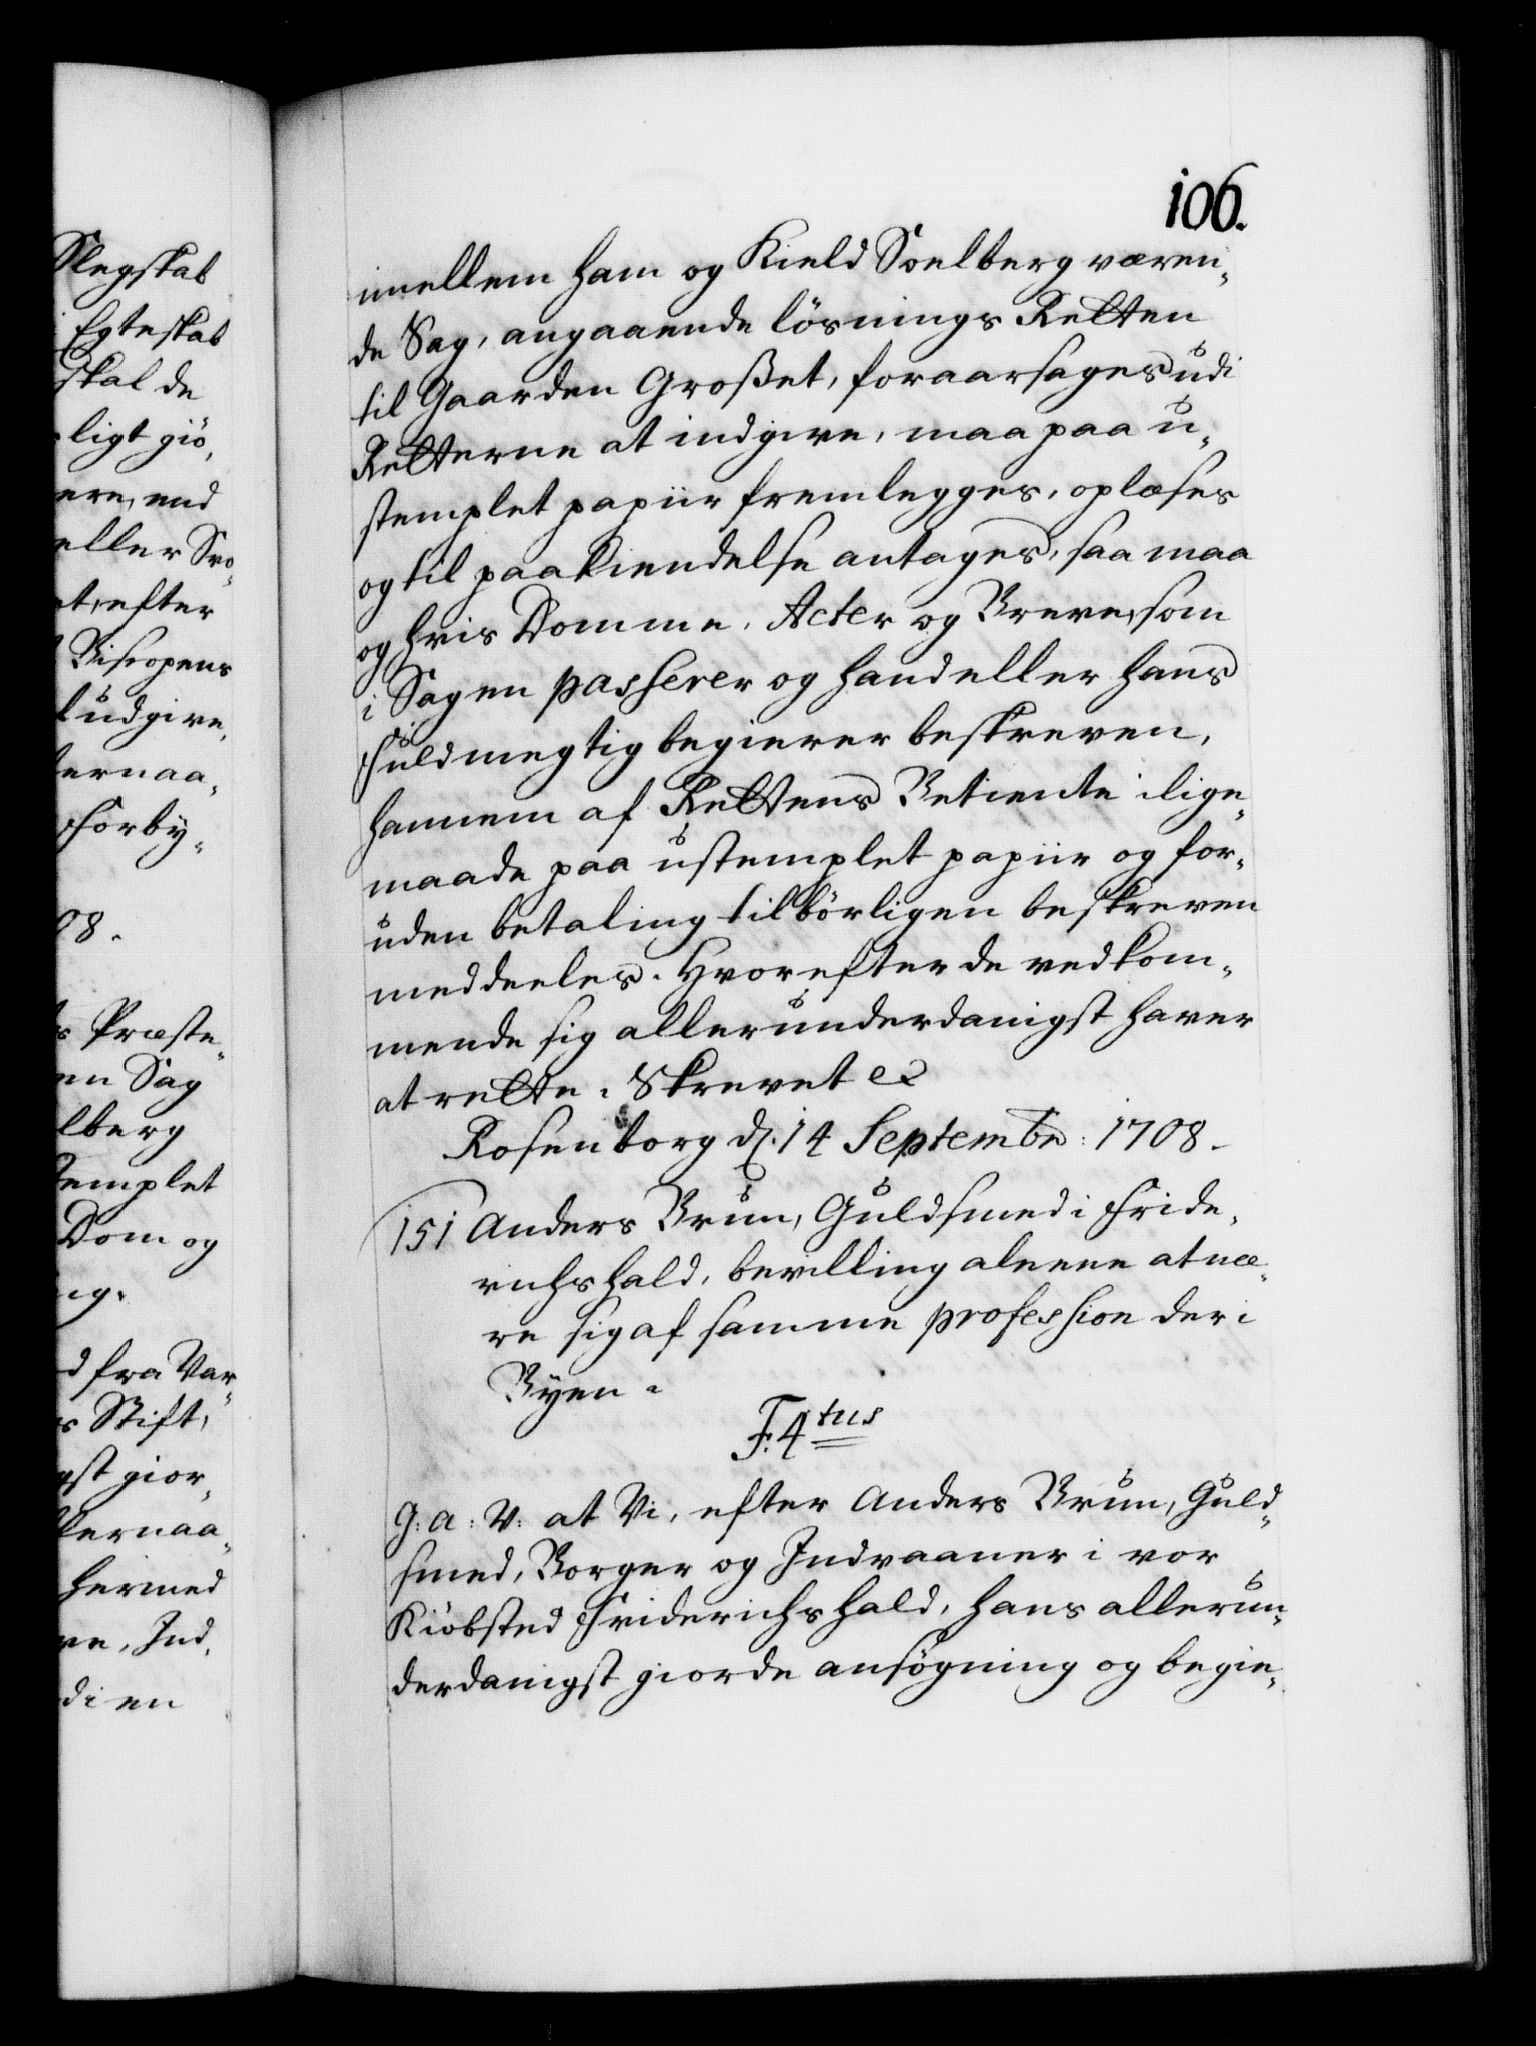 Slegskab
Egteskab
skal de
ligt giö,
ere, end
eller Svo-
et, efter
Biscopens
l udgive,
ternaa,
forby,
08.
s Præste,
en Sag
lberg
templet
Dom og
ig.
d fra Var,
s Stift,
gst gior,
ternaa,
hermed
ve, Ind,
di en
106.
imellem ham og Kield Soelberg væren,
de Sag, angaaende lösnings Retten
til Gaarden Großet, foraarsages udi
Retterne at indgive, maa paa u,
stemplet papiir fremlegges, oplæses
og til paakiendelse antages, saa maa
og hvis Domme, Acter og Breve, som
i Sagen passerer og hand eller hans
fuldmegtig begierer beskreven,
hannem af Rettens Betiente i lige,
maade paa ustemplet papiir og for,
uden betaling tilbörligen beskreven
meddeeles. Hvorefter de vedkom,
mende sig allerunderdanigst haver
at rette. Skrevet ec
Rosenborg d. 14 Septembr: 1708.
151 Anders Brun, Guldsmed i Fride,
richshald, bevilling aleene at næ,
re sig af samme profession der i
Byen.
F. 4tus
G: a: V: at Vi, efter Anders Brun, Guld,
smed, Borger og Indvaaner i vor
Kiöbsted Friderichshald, hans allerun,
derdanigst giorde ansögning og begie,